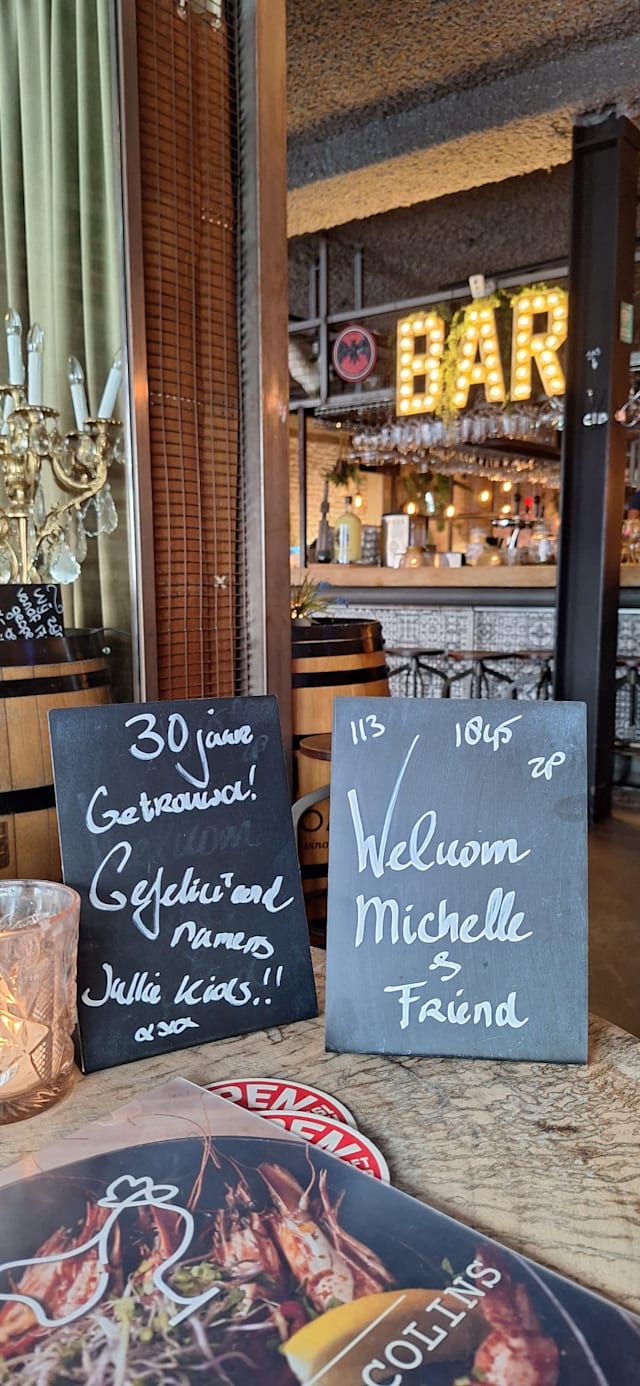 BAR
30 jaar
Getrouwd!
Gefeliciteerd
namens
Jullie kids!!
xxx
113 1845
2P
Welkom
Michelle
&
Friend
COLINS